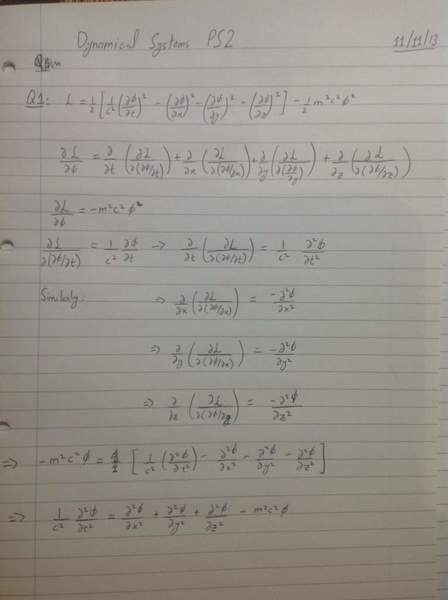 Dynamical Systems PS2 11/11/13
Q1: L = ½[1/c² (∂ϕ/∂t)² − (∂ϕ/∂x)² − (∂ϕ/∂y)² − (∂ϕ/∂z)²] − ½ m²c²ϕ²
∂L/∂ϕ = ∂/∂t (∂L/∂(∂ϕ/∂t)) + ∂/∂x (∂L/∂(∂ϕ/∂x)) + ∂/∂y (∂L/∂(∂ϕ/∂y)) + ∂/∂z (∂L/∂(∂ϕ/∂z))
∂L/∂ϕ = −m²c²ϕ
∂L/∂(∂ϕ/∂t) = 1/c² ∂ϕ/∂t → ∂/∂t (∂L/∂(∂ϕ/∂t)) = 1/c² ∂²ϕ/∂t²
Similarly: ⇒ ∂/∂x (∂L/∂(∂ϕ/∂x)) = −∂²ϕ/∂x²
⇒ ∂/∂y (∂L/∂(∂ϕ/∂y)) = −∂²ϕ/∂y²
⇒ ∂/∂z (∂L/∂(∂ϕ/∂z)) = −∂²ϕ/∂z²
⇒ −m²c²ϕ = [1/c² (∂²ϕ/∂t²) − ∂²ϕ/∂x² − ∂²ϕ/∂y² − ∂²ϕ/∂z²]
⇒ 1/c² ∂²ϕ/∂t² = ∂²ϕ/∂x² + ∂²ϕ/∂y² + ∂²ϕ/∂z² − m²c²ϕ